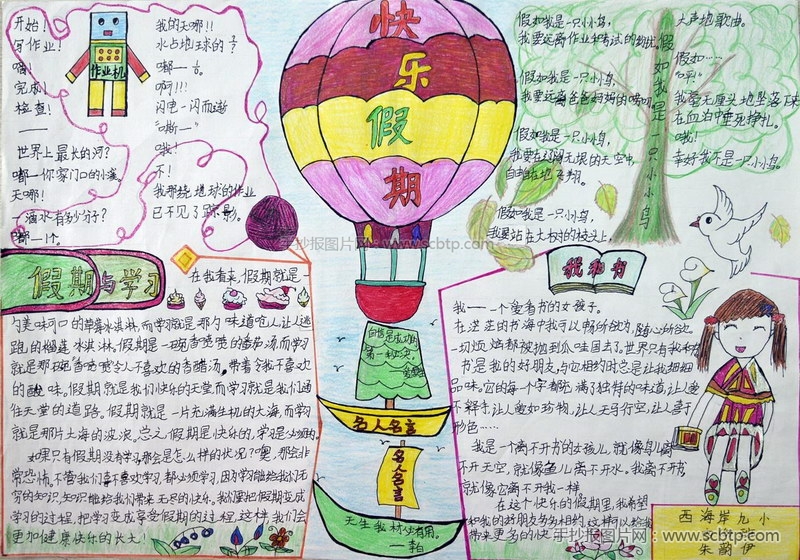 快乐假期
作业机
开始！
写作业！
嗡！
完成！
检查！
——
世界上最长的河？
嘟—你家门口的小溪
天哪！
一滴水有多少分子？
嘟—1个。
我的天哪！！
水占地球的
嘟—
啊！！！
闪电一闪而逝
“嘶—”
哦！
不！
我那绕地球的作业
已不见了踪影。
假如我是一只小小鸟
假如我是一只小鸟，
我要远离作业和考试的
假如我是一只小鸟，
我要远离爸爸妈妈的唠叨
假如我是一只小鸟，
我要在辽阔无垠的天空中，
自由自在地飞翔。
假如我是一只小鸟，
我要站在大树的枝头上，
大声地歌曲。
假如……
“呯！”
我毫无厘头地坠落下来
在血泊中垂死挣扎。
哦！
幸好我不是一只小小鸟。
手抄报图片网：www.scbtp.com
假期与学习
在我看来，假期就是一
勺美味可口的草莓冰淇淋，而学习就是那勺味道呛人让人逃
跑的榴莲冰淇淋。假期是一碗香喷喷的
就是那碗 令人不喜欢的香醋汤，带着令我不喜欢
的酸味。假期就是我们快乐的天堂而学习就是我们通
往天堂的道路。假期就是一片充满生机的大海，而学习
就是那片大海的波浪。总之假期是快乐的，学习是
如果只有假期没有学习，那会是怎么样的状况？嗯，那会非
常恐怖，不管我们喜不喜欢学习，都必须学习，因为学习能给我们无
穷的知识，知识能给我们带来无尽的快乐，我们要把假期变成
学习的过程，把学习变成享受假期的过程，这样，我们会
更加健康快乐的长大！
自信是成功的
第一秘诀。
名人名言
名人名言
天生我材必有用。
——李白
我和书
我——一个爱看书的女孩子。
在茫茫的书海中我可以畅所欲为，随心所欲。
一切烦恼都被抛到爪哇国去了。世界只有我和书
书是我的好朋友，与它相约时总是让我细细
品味。它的每一个字都充满了独特的味道，让人爱
不释手，让人爱如珍物，让人天马行空，让人喜于
形色……
我是一个离不开书的女孩儿，就像鸟儿离
不开天空，就像鱼儿离不开水。我离不开书
就像它离不开我一样。
在这个快乐的假期里，我希望
和我的好朋友多多相约，这样可以给我
带来更多的快
西海岸九小
朱蔚伊
手抄报图片网：www.scbtp.com